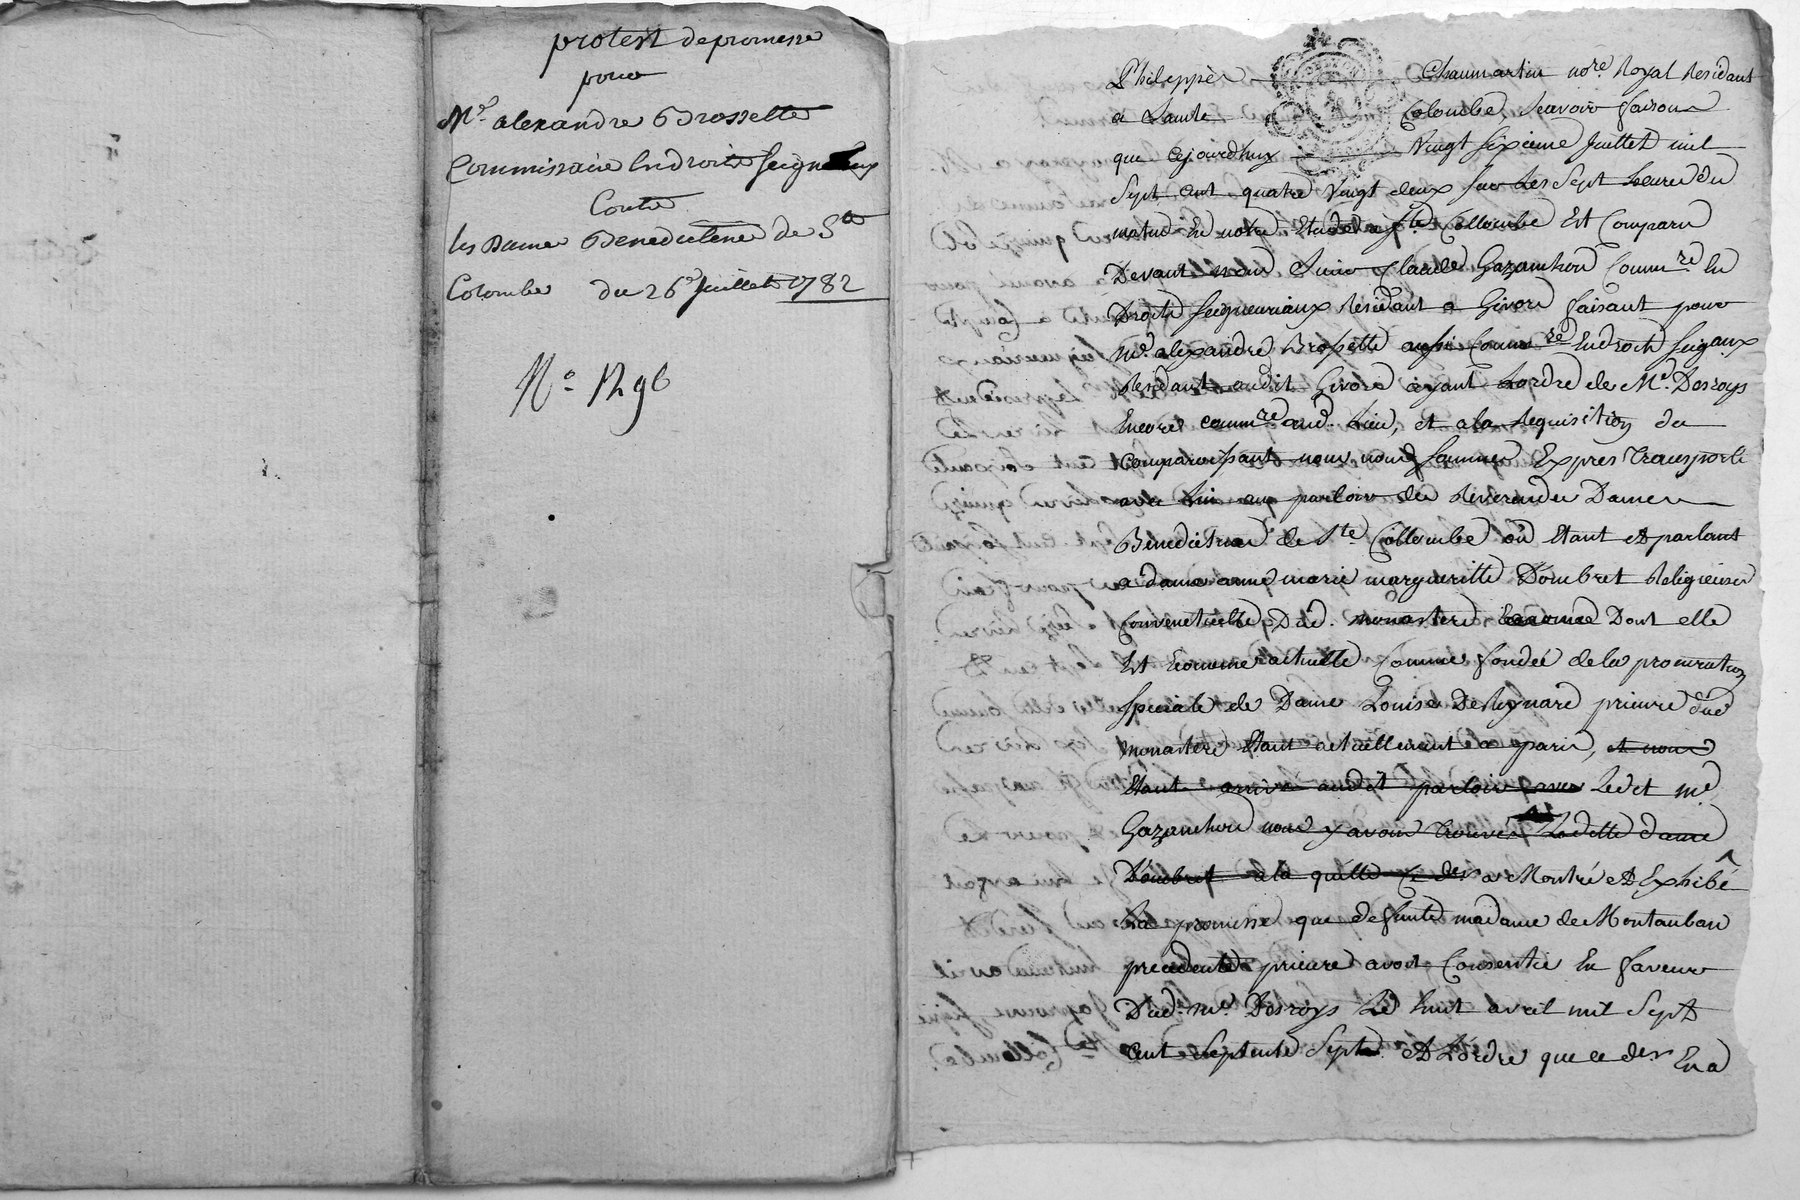 protest de promesse
pour
Mr. alexandre Brossette
Commissaire En droits seigneuriaux
Contre
les Dames Benedictines de Ste
Colombe du 26e Juillet 1782
No 1296
Philippe Chaumartin nore. Royal Residant
a Sainte Colombe, sçavoir faisons
que cejourdhuy Vingt sixieme Juillet mil
sept cent quatre vingt deux sur les sept heures du
matin En notre Etude a ste. Collombe Est Comparu
Devant nous Claude Gazanchon Commre. En
Droits seigneuriaux Residant a Givors faisant pour
me. alexandre Brossette aussi Commre. En droits seigaux
Residant audit Givors ayant Lordre de Me. Desroys
Encore commre. aud. Lieu, et a la Requisition du
comparoissant nous nous sommes Exprès transporté
avec Lui au parloir des Reverandes Dames
Benedictines de Ste. Collombe où Etant et parlant
a dame anne marie margueritte Dombret Religieuse
Conventuelle Dud. monastere Dont elle
Est Econome actuelle Comme fondée de la procuration
speciale de Dame Louise DeReynard prieure dud
monastere Etant actuellement a paris, et nous
Etant arrivé audit parloir avec Ledit me
Gazanchon nous y avons trouvé Ladite dame
Dombret a la quelle Ce der. a Montré et Exhibé
La promesse que defunte madame de Montauban
precedente prieure avoit Consentie En faveur
Dud. me. Desroys Le huit avril mil sept
cent septente sept. et Lordre que ce der. En a